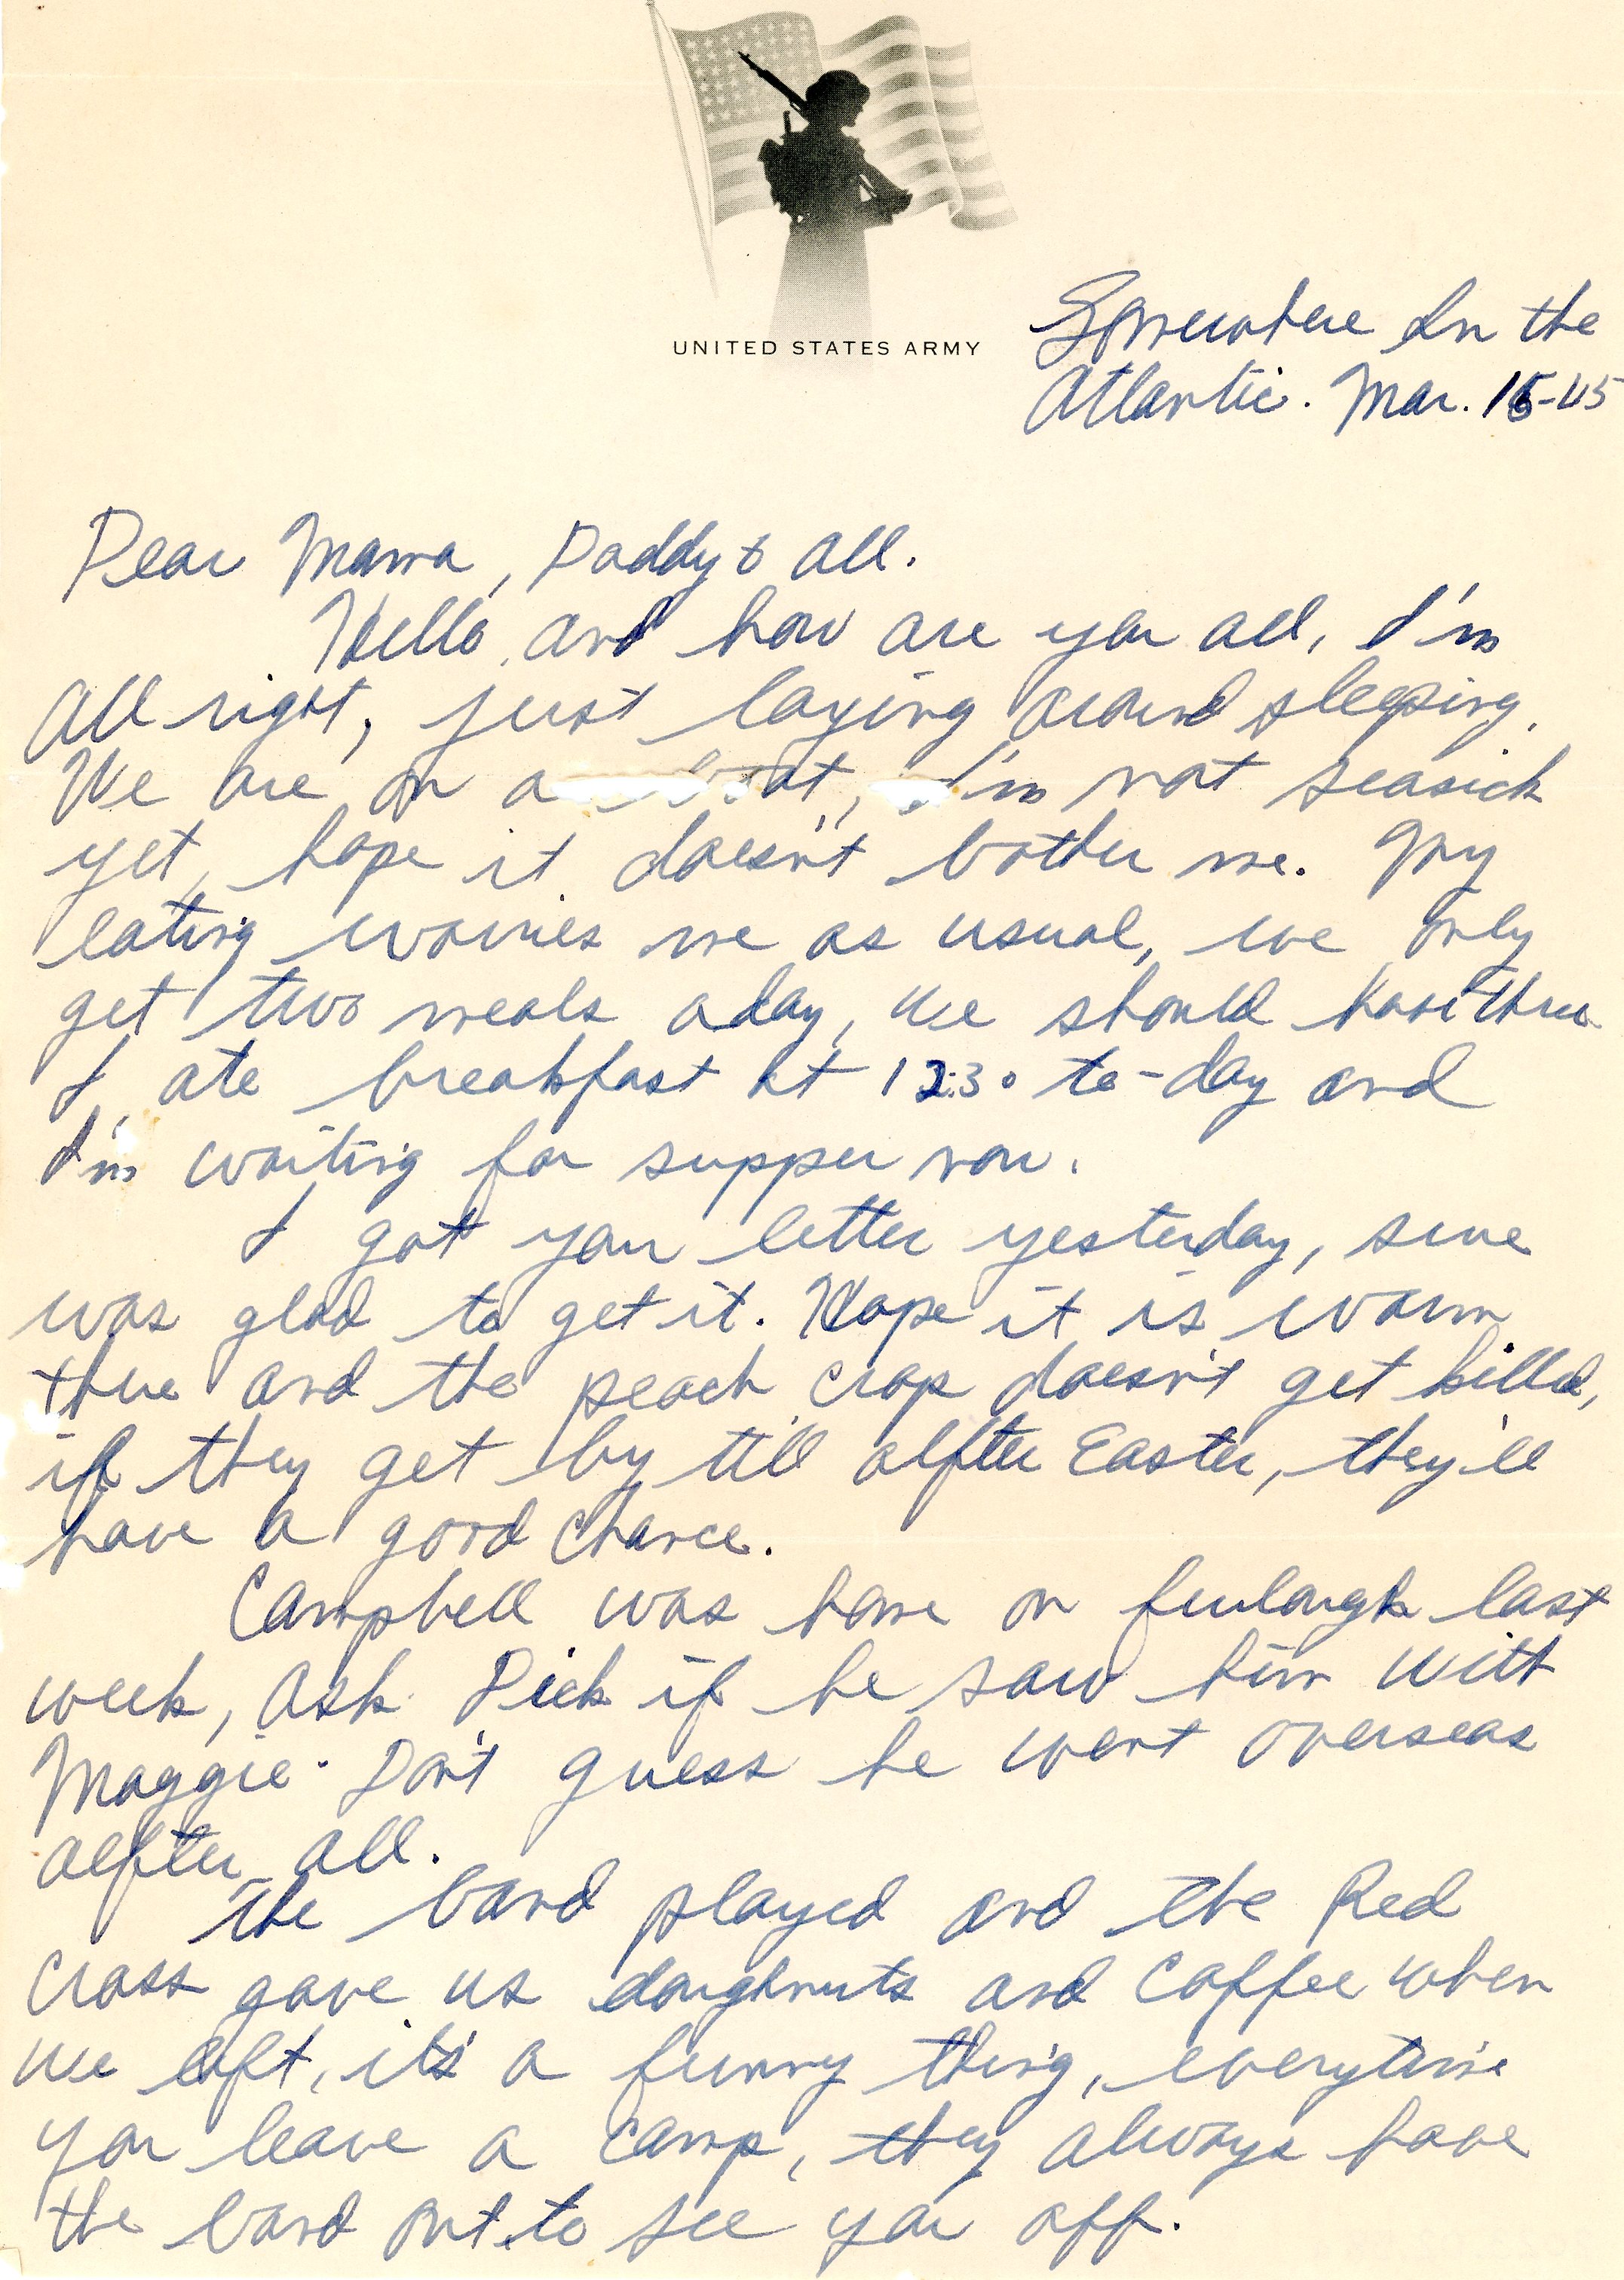 UNITED STATES ARMY
Somewhere In the
Atlantic. Mar. 15-45
Dear Mama, Daddy & all.
Hello, and how are you all, I'm
all right, just laying around sleeping.
We are on a boat, I'm not seasick
yet, hope it doesn't bother me. My
eating worries me as usual, we only
get two meals a day, we should have three
I ate breakfast at 12:30 to-day and
I'm waiting for supper now.
I got your letter yesterday, sure
was glad to get it. Hope it is warm
there and the peach crop doesn't get killed,
if they get by till alfter Easter, they'll
have a good chance.
Campbell was home on furlough last
week, ask Dick if he saw him with
Maggie. Don't guess he went overseas
alfter all.
The band played and the Red
Cross gave us doughnuts and coffee when
we left, it's a funny thing, everytime
you leave a camp, they always have
the band out to see you off.